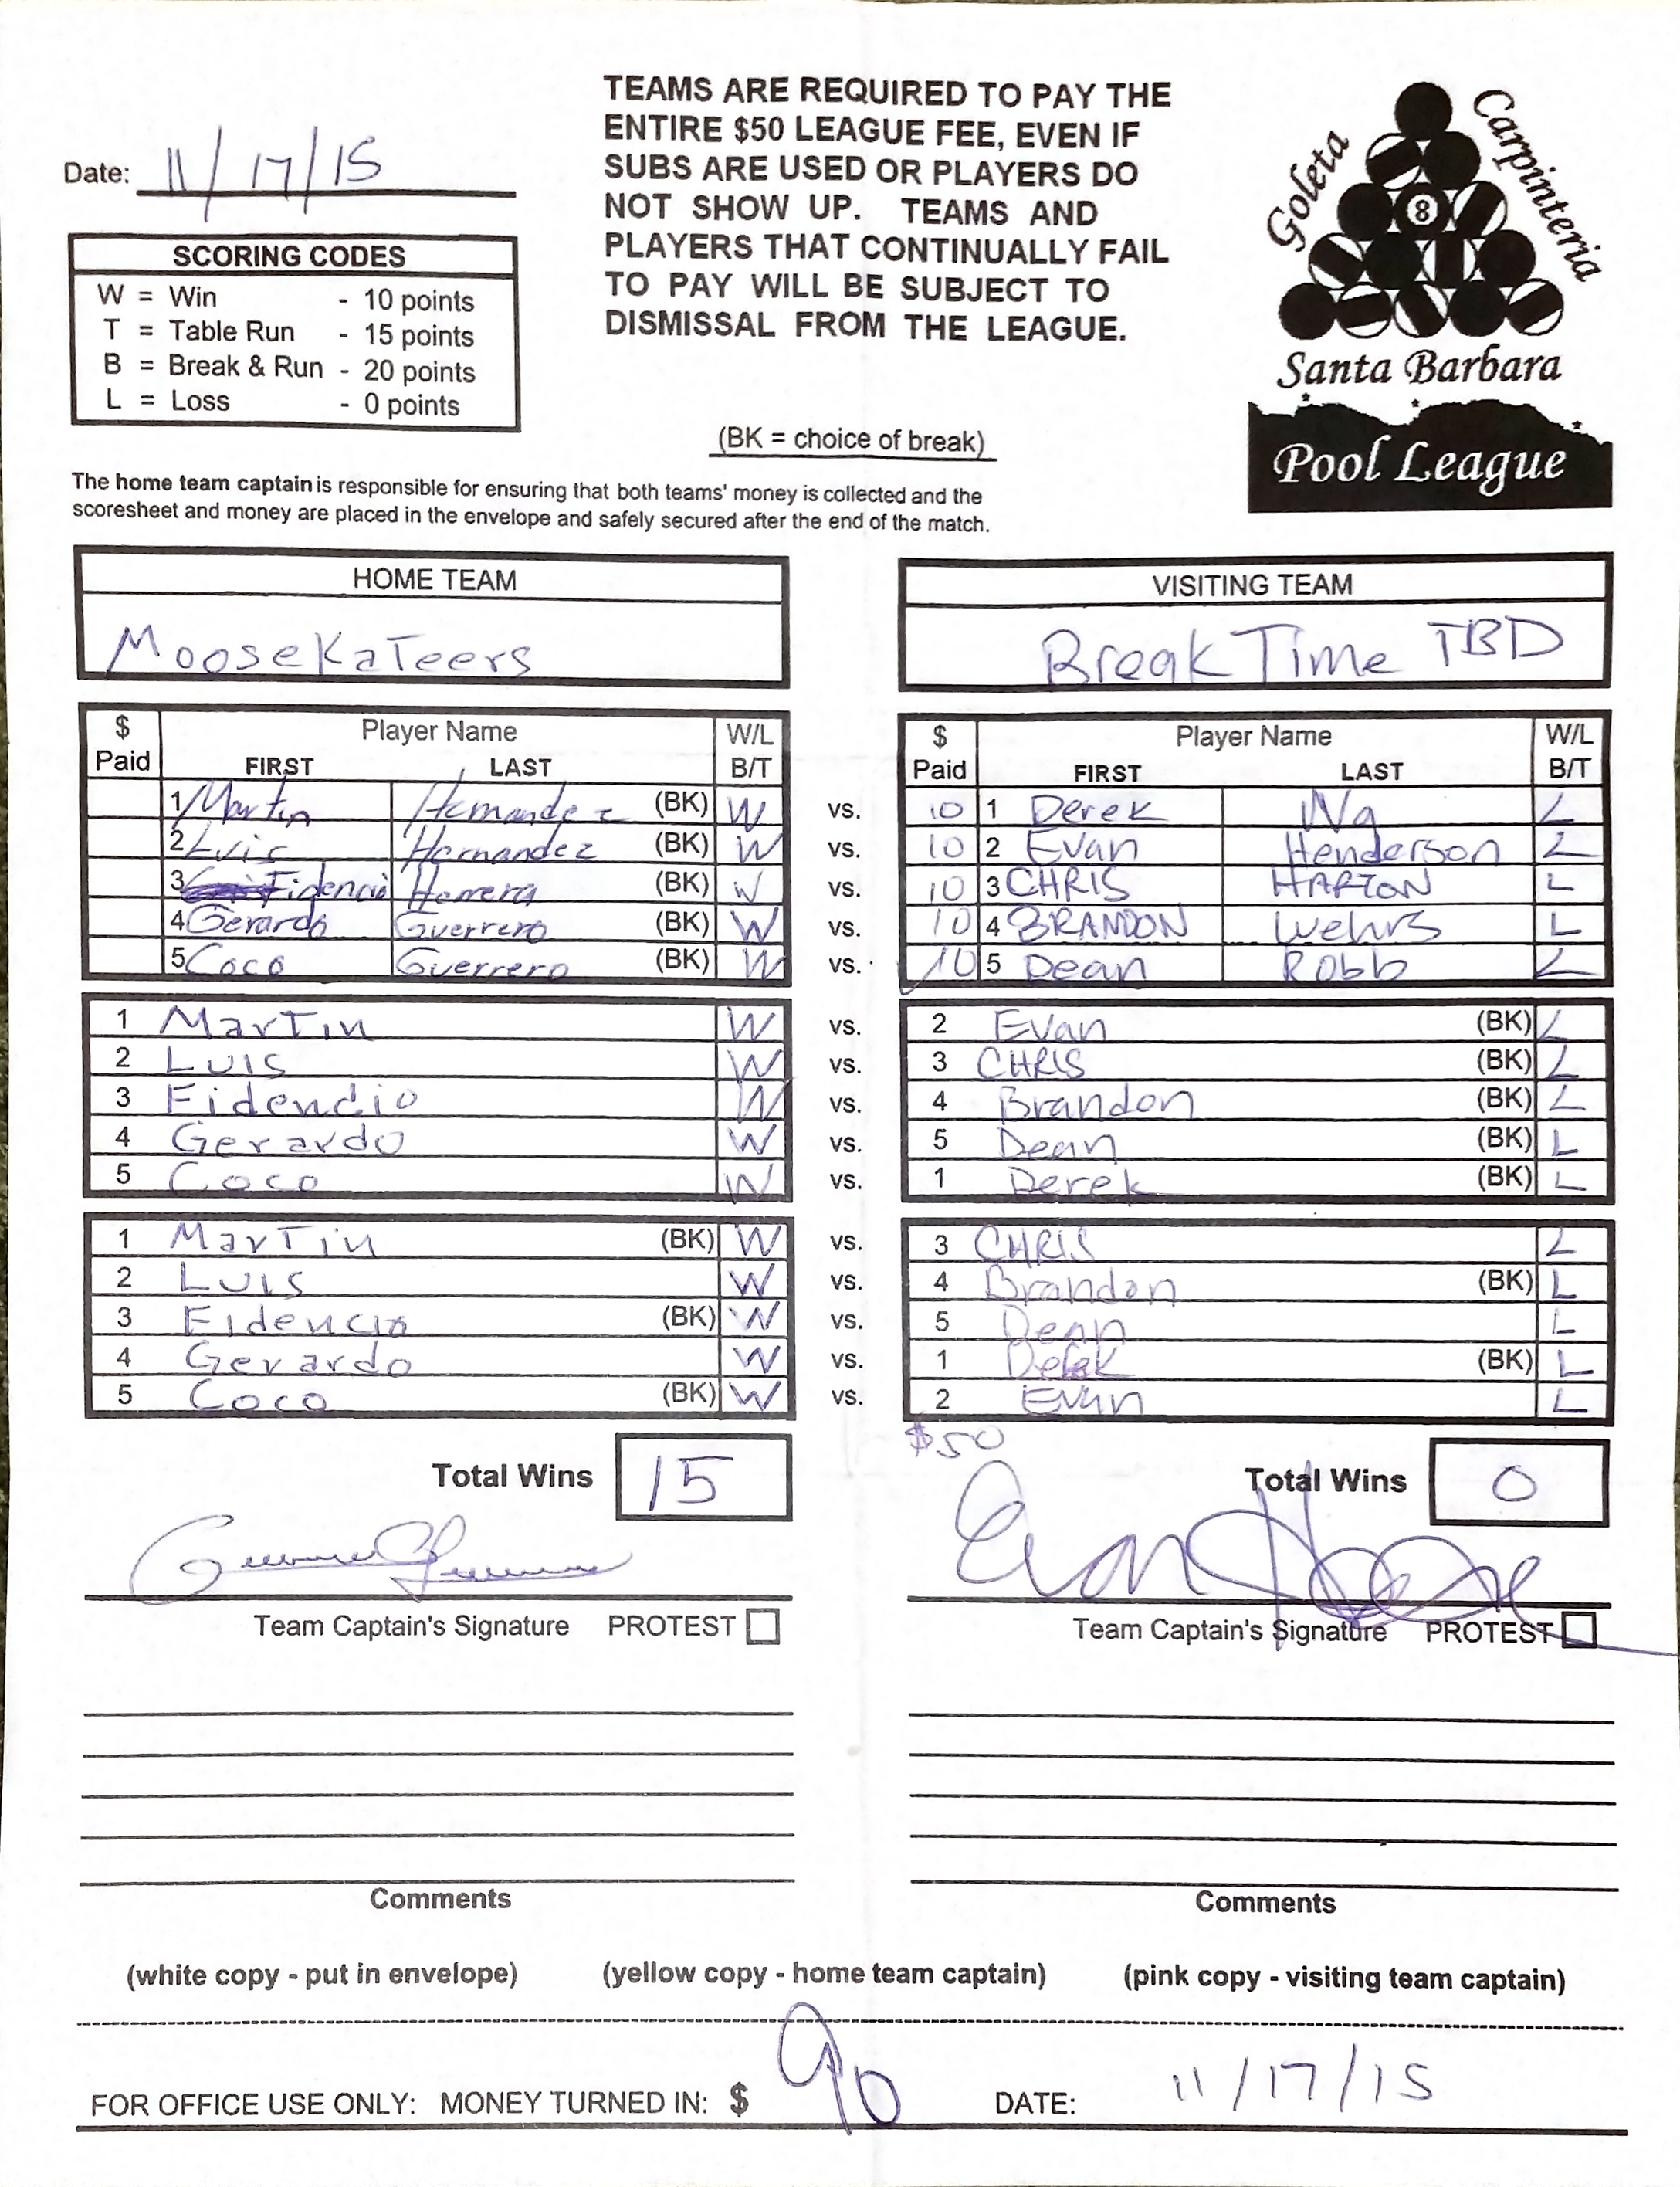 Date: 11/17/15
TEAMS ARE REQUIRED TO PAY THE
ENTIRE $50 LEAGUE FEE, EVEN IF
SUBS ARE USED OR PLAYERS DO
NOT SHOW UP. TEAMS AND
PLAYERS THAT CONTINUALLY FAIL
TO PAY WILL BE SUBJECT TO
DISMISSAL FROM THE LEAGUE.
Goleta
Carpinteria
8
Santa Barbara
Pool League
SCORING CODES
W = Win - 10 points
T = Table Run - 15 points
B = Break & Run - 20 points
L = Loss - 0 points
(BK = choice of break)
The home team captain is responsible for ensuring that both teams' money is collected and the
scoresheet and money are placed in the envelope and safely secured after the end of the match.
HOME TEAM
MooseKaTeers
VISITING TEAM
Break Time TBD
$ Paid Player Name FIRST LAST W/L B/T
$ Paid Player Name FIRST LAST W/L B/T
1 Martin Hernandez (BK) W vs. 10 1 Derek Ng L
2 Luis Hernandez (BK) W vs. 10 2 Evan Henderson L
3 Fidencio Herrera (BK) W vs. 10 3 CHRIS HARTON L
4 Gerardo Guerrero (BK) W vs. 10 4 BRANDON Wehrs L
5 Coco Guerrero (BK) W vs. 10 5 Dean Robb L
1 MarTin W vs. 2 Evan (BK) L
2 LUIS W vs. 3 CHRIS (BK) L
3 Fidencio W vs. 4 Brandon (BK) L
4 Gerardo W vs. 5 Dean (BK) L
5 Coco W vs. 1 Derek (BK) L
1 MarTin (BK) W vs. 3 CHRIS L
2 LUIS W vs. 4 Brandon (BK) L
3 Fidencio (BK) W vs. 5 Dean L
4 Gerardo W vs. 1 Derek (BK) L
5 Coco (BK) W vs. 2 Evan L
$50
Total Wins 15
Total Wins 0
Team Captain's Signature PROTEST
Team Captain's Signature PROTEST
Comments
Comments
(white copy - put in envelope) (yellow copy - home team captain) (pink copy - visiting team captain)
FOR OFFICE USE ONLY: MONEY TURNED IN: $ 90 DATE: 11/17/15